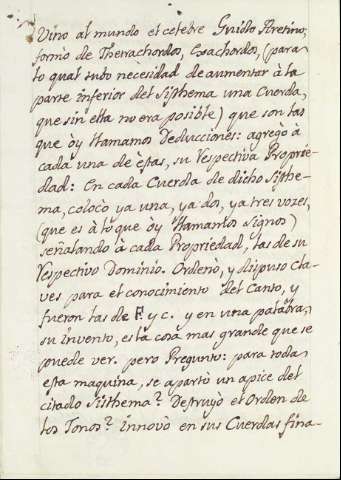 Vino al mundo el celebre Guido Aretino,
formò de Thetrachordos, Exachordos, (para
lo qual tubo necesidad de aumentar à la
parte inferior del Systhema una Cuerda,
que sin ella no era posible) que son las
que òy llamamos Deducciones: agregò à
cada una de èstas, su respectiva Proprie-
dad: En cada Cuerda de dicho Systhe-
ma, colocò ya una, ya dos, ya tres vozes,
(que es à lo que òy llamamos Signos)
señalando à cada Propriedad, las de su
respectivo Dominio. Ordenò, y dispuso cla-
ves para el conocimiento del Canto, y
fueron las de F. y C. y en una palabra,
su invento, es la cosa mas grande que se
puede ver. pero Pregunto: para toda
esta maquina, se apartò un apice del
citado Systhema? Destruyò el Orden de
los Tonos? innovò en sus Cuerdas fina-